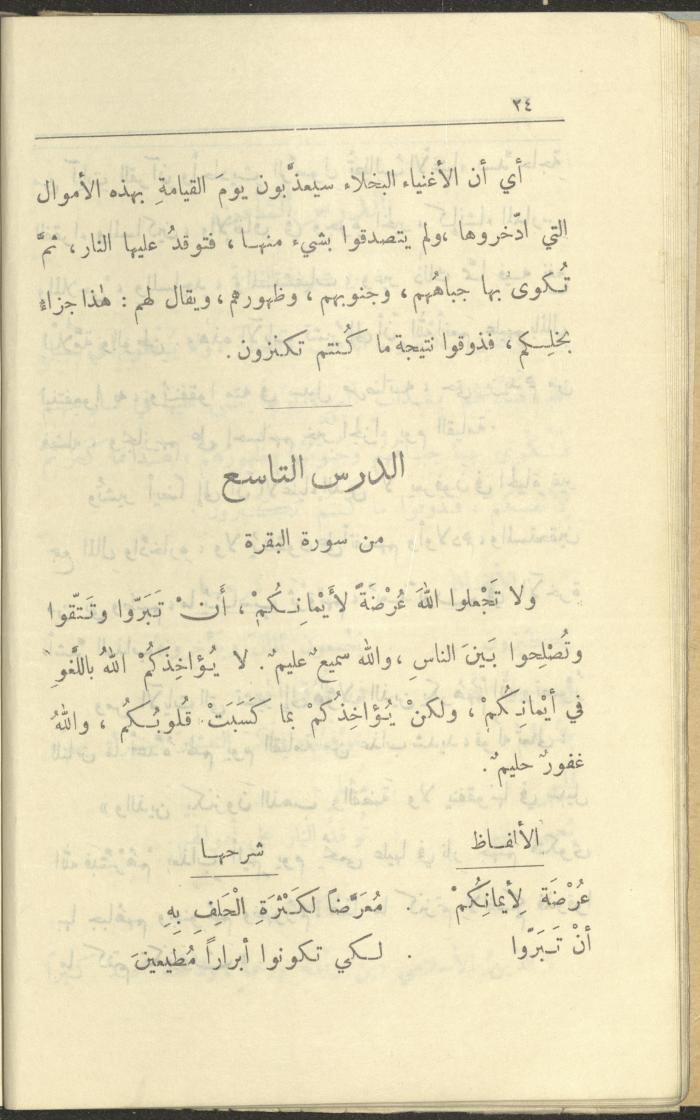 ٣٤
أي أن الأغنياء البخلاء سيعذَّبون يومَ القيامةِ بهذه الأموال
التي ادّخروها ،ولم يتصدقوا بشيء منهـا ، فتوقدُ عليها النار، ثمَّ
تُـكوىٰ بها جباهُهم ، وجنوبهم ، وظهورهم ، ويقال لهم : هٰذا جزاءُ
بخلِـكم ، فذوقوا نتيجة ما كُـنتم تكنزون .
الدرس التاسع
من سورة البقرة
ولا تَجْعلوا اللهَ عُرْضَةً لأَيْمانِـكُمْ ، أَنْ تَبَرّوا وتَـتّقوا
وتُصْلِحوا بَـينَ الناسِ ،والله سميعٌ عليمٌ . لا يُـؤاخِذكُمْ اللهُ باللَّغوِ
في أيْمانِـكمْ ، ولكنْ يُـؤاخِذُكُمْ بما كَسَبَتْ قُلوبُـكُم ، واللهُ
غفورٌ حليمٌ .
الألفـاظ شرحهـا
عُرْضَة لِأيمانِكُمْ . مُعَرَّضاً لكَـثْرَةِ الْحَلِفِ بِهِ
أنْ تَـبَرّوا . لـكي تـكونوا أبراراً مُطيعينَ